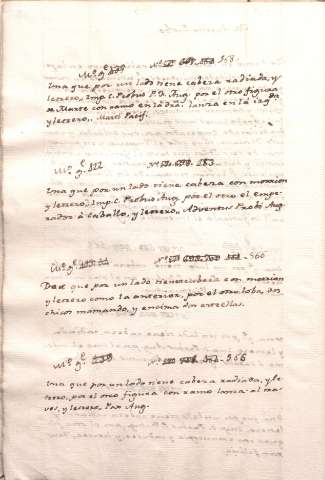 Una que por un lado tiene cabeza radiada, y
letrero, Imp. C. Probus P. F. Aug. por el otro figura
de Marte con ramo en la dra. lanza en la izqda
y letrero, Marti Pacif.
Mo. ge. 112 183.
Una que por un lado tiene cabeza con morrion
y letrero, Imp. C. Probus Aug. por el otro el Empe-
rador à caballo, y letrero, Adventus Probi Aug.
Dos que por un lado tiene cabeza con morrion
y letrero como la anterior, por el otro loba, dos
chicos mamando, y encima dos estrellas.
566
Una que por un lado tiene cabeza radiada, y le-
trero, por el otro figura con ramo lanza al tra-
ves, y letrero Pax Aug.